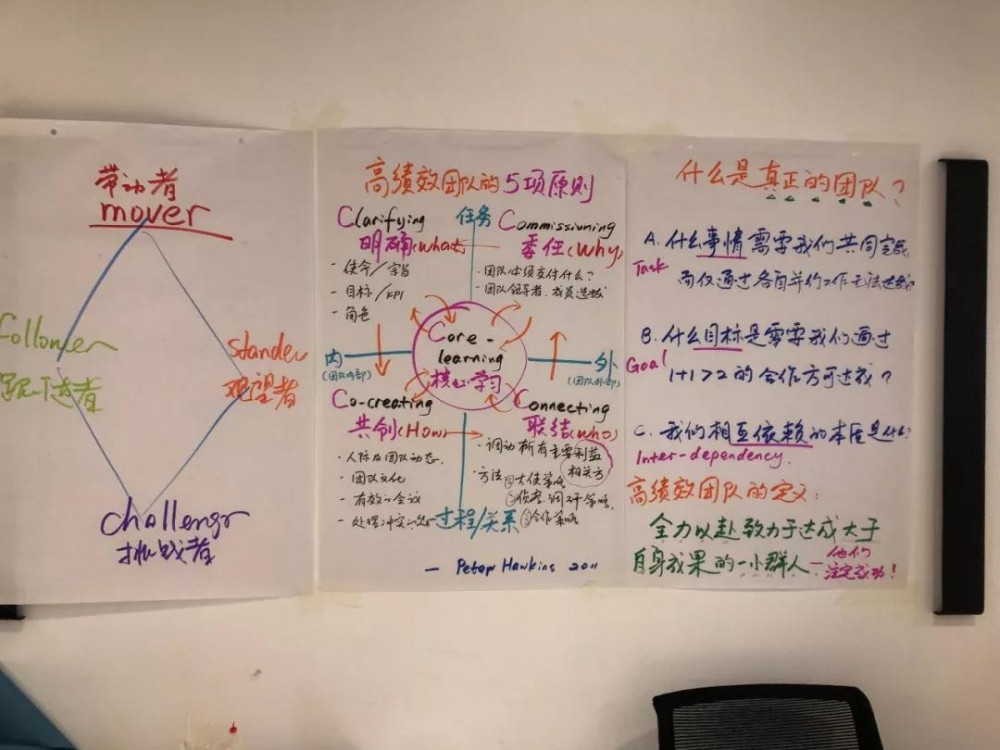 带动者
mover
Follower
跟进者
Stander
观望者
challengr
挑战者
高绩效团队的5项原则
Clarifying
明确(what)
- 使命/宗旨
- 目标/KPI
- 角色
任务
Commissiuning
委任(Why)
· 团队必须交付什么?
· 团队领导者、成员选拔
内
(团队内部)
Core-
learning
核心学习
外
(团队外部)
Co-creating
共创(How)
· 人际及团队动态
· 团队文化
· 有效会议
· 处理冲突
Connecting
联结(who)
· 调动所有主要利益
相关方
· 方法 ①大使策略
②侦察调研策略
③合作策略
过程/关系
— Peter Hawkins 2011
什么是真正的团队?
A. 什么事情需要我们共同完成
Task
而仅通过各自并行工作无法达成?
B. 什么目标是需要我们通过
Goal
1+1>2的合作方可达成?
C. 我们相互依赖的本质是什么?
Inter-dependency.
高绩效团队的定义:
全力以赴致力于达成大于
自身成果的一小群人
— 他们
注定成功!